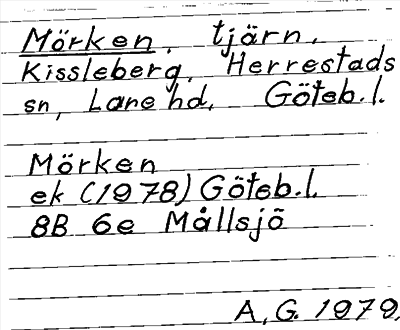 Mörken, tjärn,
Kissleberg, Herrestads
sn, Lane hd, Göteb. l.
Mörken
ek (1978) Göteb. l.
8B 6e Mållsjö
A. G. 1979.